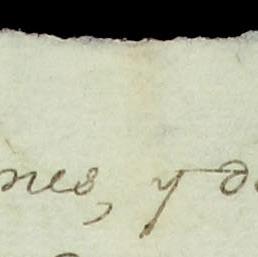 nes, y de